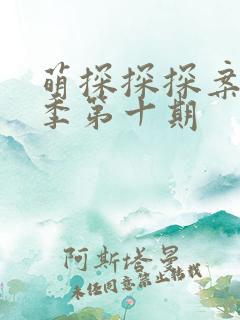 萌探探探案
季第十期
阿斯塔曼
未经同意禁止转载